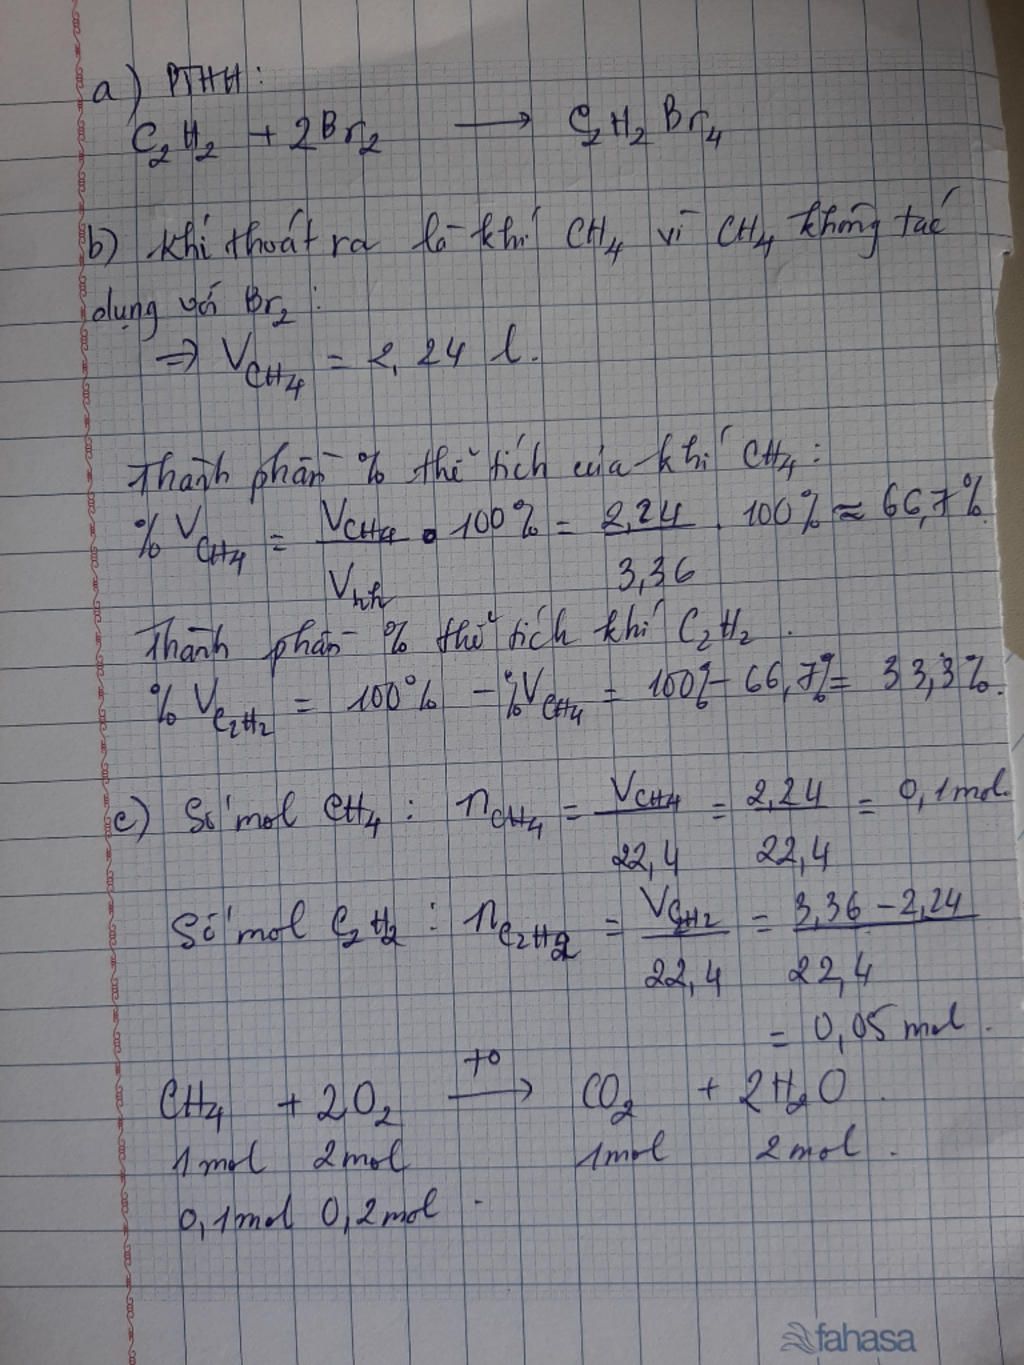 a) PTHH:
C₂H₂ + 2Br₂ → C₂H₂Br₄
b) khí thoát ra là khí CH₄ vì CH₄ không tác
dụng với Br₂:
⇒ V_CH₄ = 2,24 l.
Thành phần % thể tích của khí CH₄:
% V_CH₄ = V_CH₄ / V_hh . 100% = 2,24 / 3,36 . 100% ≈ 66,7%.
Thành phần % thể tích khí C₂H₂.
% V_C₂H₂ = 100% - %V_CH₄ = 100% - 66,7% = 33,3%.
c) Số mol CH₄: n_CH₄ = V_CH₄ / 22,4 = 2,24 / 22,4 = 0,1 mol.
Số mol C₂H₂: n_C₂H₂ = V_C₂H₂ / 22,4 = 3,36 - 2,24 / 22,4
= 0,05 mol.
CH₄ + 2O₂ →(t°) CO₂ + 2H₂O.
1mol 2mol 1mol 2mol.
0,1mol 0,2mol
fahasa